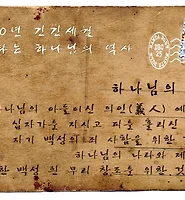 0년 긴긴세월
나는 하나님의 역사
하나님의
나님의 아들이신 의인(義人) 예
십자가를 지시고 피를 흘리신
자기 백성의 죄 사함을 위한
하나님의 나라와 제
한 백성 된 우리 창조를 위한 것